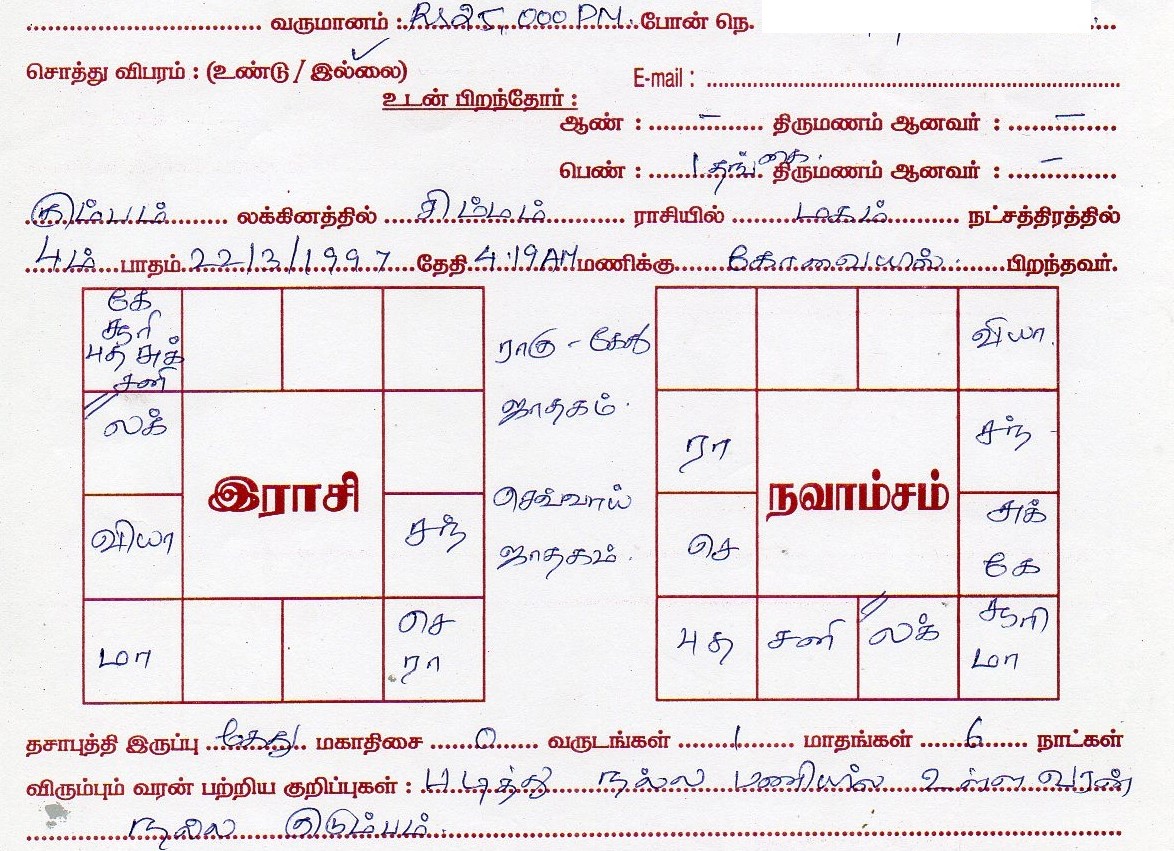 வருமானம் : Rs 25,000 PM. போன் நெ.
சொத்து விபரம் : (உண்டு / இல்லை) E-mail :
உடன் பிறந்தோர் :
ஆண் : – திருமணம் ஆனவர் : –
பெண் : 1 தங்கை. திருமணம் ஆனவர் : –
கும்பம் லக்கினத்தில் சிம்மம் ராசியில் மகம் நட்சத்திரத்தில்
4ம் பாதம் 22/3/1997 தேதி 4:19AM மணிக்கு கோவையில். பிறந்தவர்.
கே
சூரி
புத சுக்
சனி
லக்
வியா
மா
இராசி
சந்
செ
ரா
ராகு - கேது
ஜாதகம்.
செவ்வாய்
ஜாதகம்.
வியா.
ரா
செ
நவாம்சம்
சந்
சுக்
கே
புத சனி லக் சூரி
மா
தசாபுத்தி இருப்பு கேது மகாதிசை 0 வருடங்கள் 1 மாதங்கள் 6 நாட்கள்
விரும்பும் வரன் பற்றிய குறிப்புகள் : படித்து நல்ல பணியில் உள்ள வரன்
நல்ல குடும்பம்.